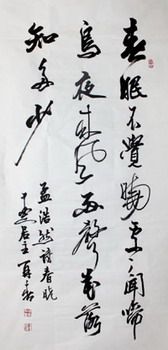 春眠不覺曉處々聞啼
鳥夜來風雨聲花落
知多少
孟浩然詩春曉